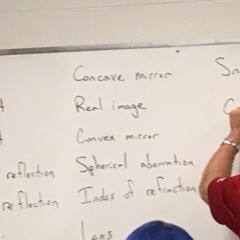 Concave mirror
Real image
Convex mirror
reflection Spherical aberration
reflection Index of refraction
Lens